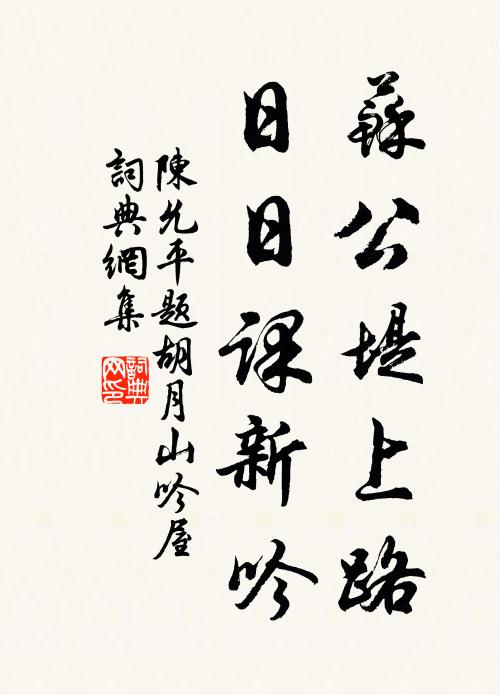 蘇公堤上路
日日課新吟
陳允平題胡月山吟屋
詞典網集
詞典網印